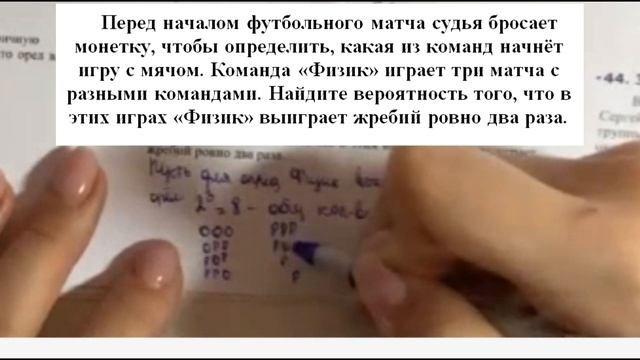 Перед началом футбольного матча судья бросает
монетку, чтобы определить, какая из команд начнёт
игру с мячом. Команда «Физик» играет три матча с
разными командами. Найдите вероятность того, что в
этих играх «Физик» выиграет жребий ровно два раза.
44.
Сергей
жребий ровно два раза.
Пусть для опред Физик
2³ = 8 - общ кол-в
ООО РРР
ОРР
РОР Р
РРО Р